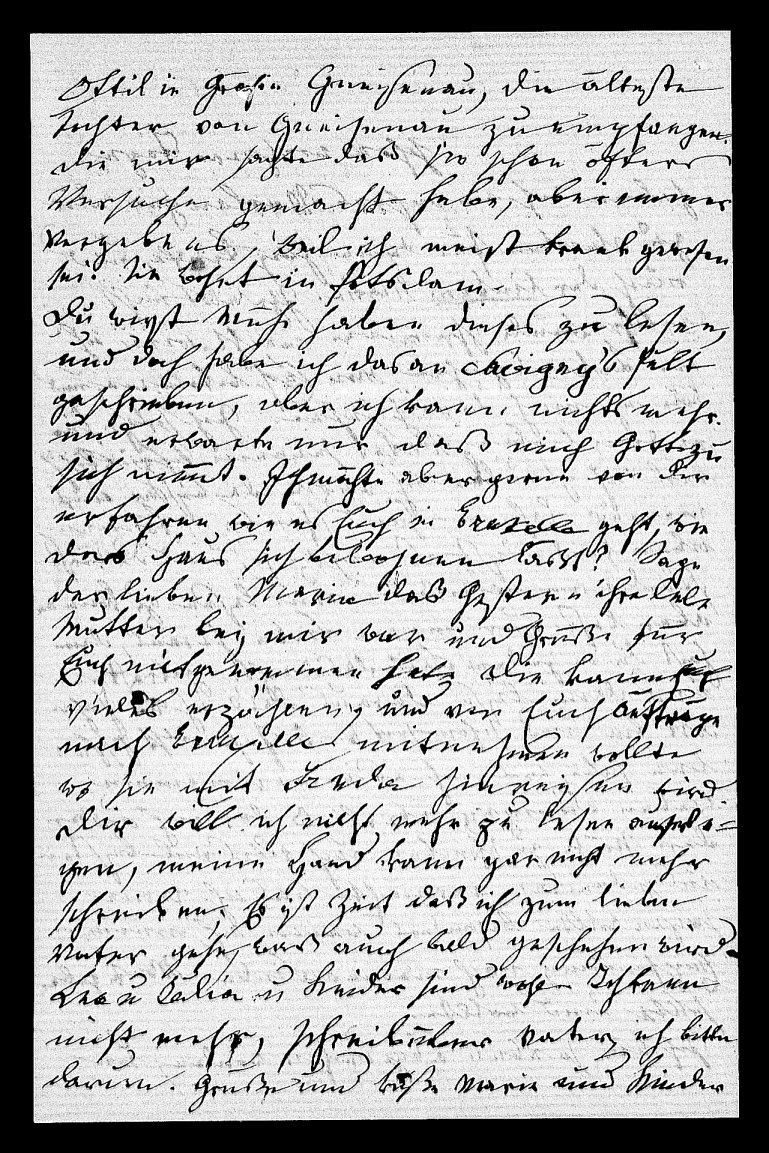 Ottilie Gräfin Gneisenau, die älteste
Tochter von Gneisenau zu empfangen.
die mir sagte daß sie schon öfters
Versuche gemacht habe, aber immer
vergebens, weil ich meist krank gewesen
sei. Sie wohnt in Potsdam.
Du wirst Mühe haben dieses zu lesen,
und doch habe ich das an Savigny's Pult
geschrieben, aber ich kann nichts mehr.
und erwarte nur daß mich Gott zu
sich nimmt. Ich möchte aber gerne von Dir
erfahren wie es Euch in geht, wie
das Haus sich bewohnen läßt? Sage
der lieben Marie daß Gestern ihre liebe
Mutter bey mir war und Grüße für
Euch mitgenommen hat die kann Euch
vieles erzählen, und von Euch Aufträge
nach mitnehmen wollte
wo sie mit hinreisen wird
Dir will ich nicht mehr zu lesen auferle=
gen, meine Hand kann gar nicht mehr
schreiben, Es ist Zeit daß ich zum lieben
Vater gehe, was auch bald geschehen wird.
Leo u u Kinder sind wohl Ich kann
nicht mehr, schreib Vater, ich bitte
darum. Grüße und küße Marie und Kinder